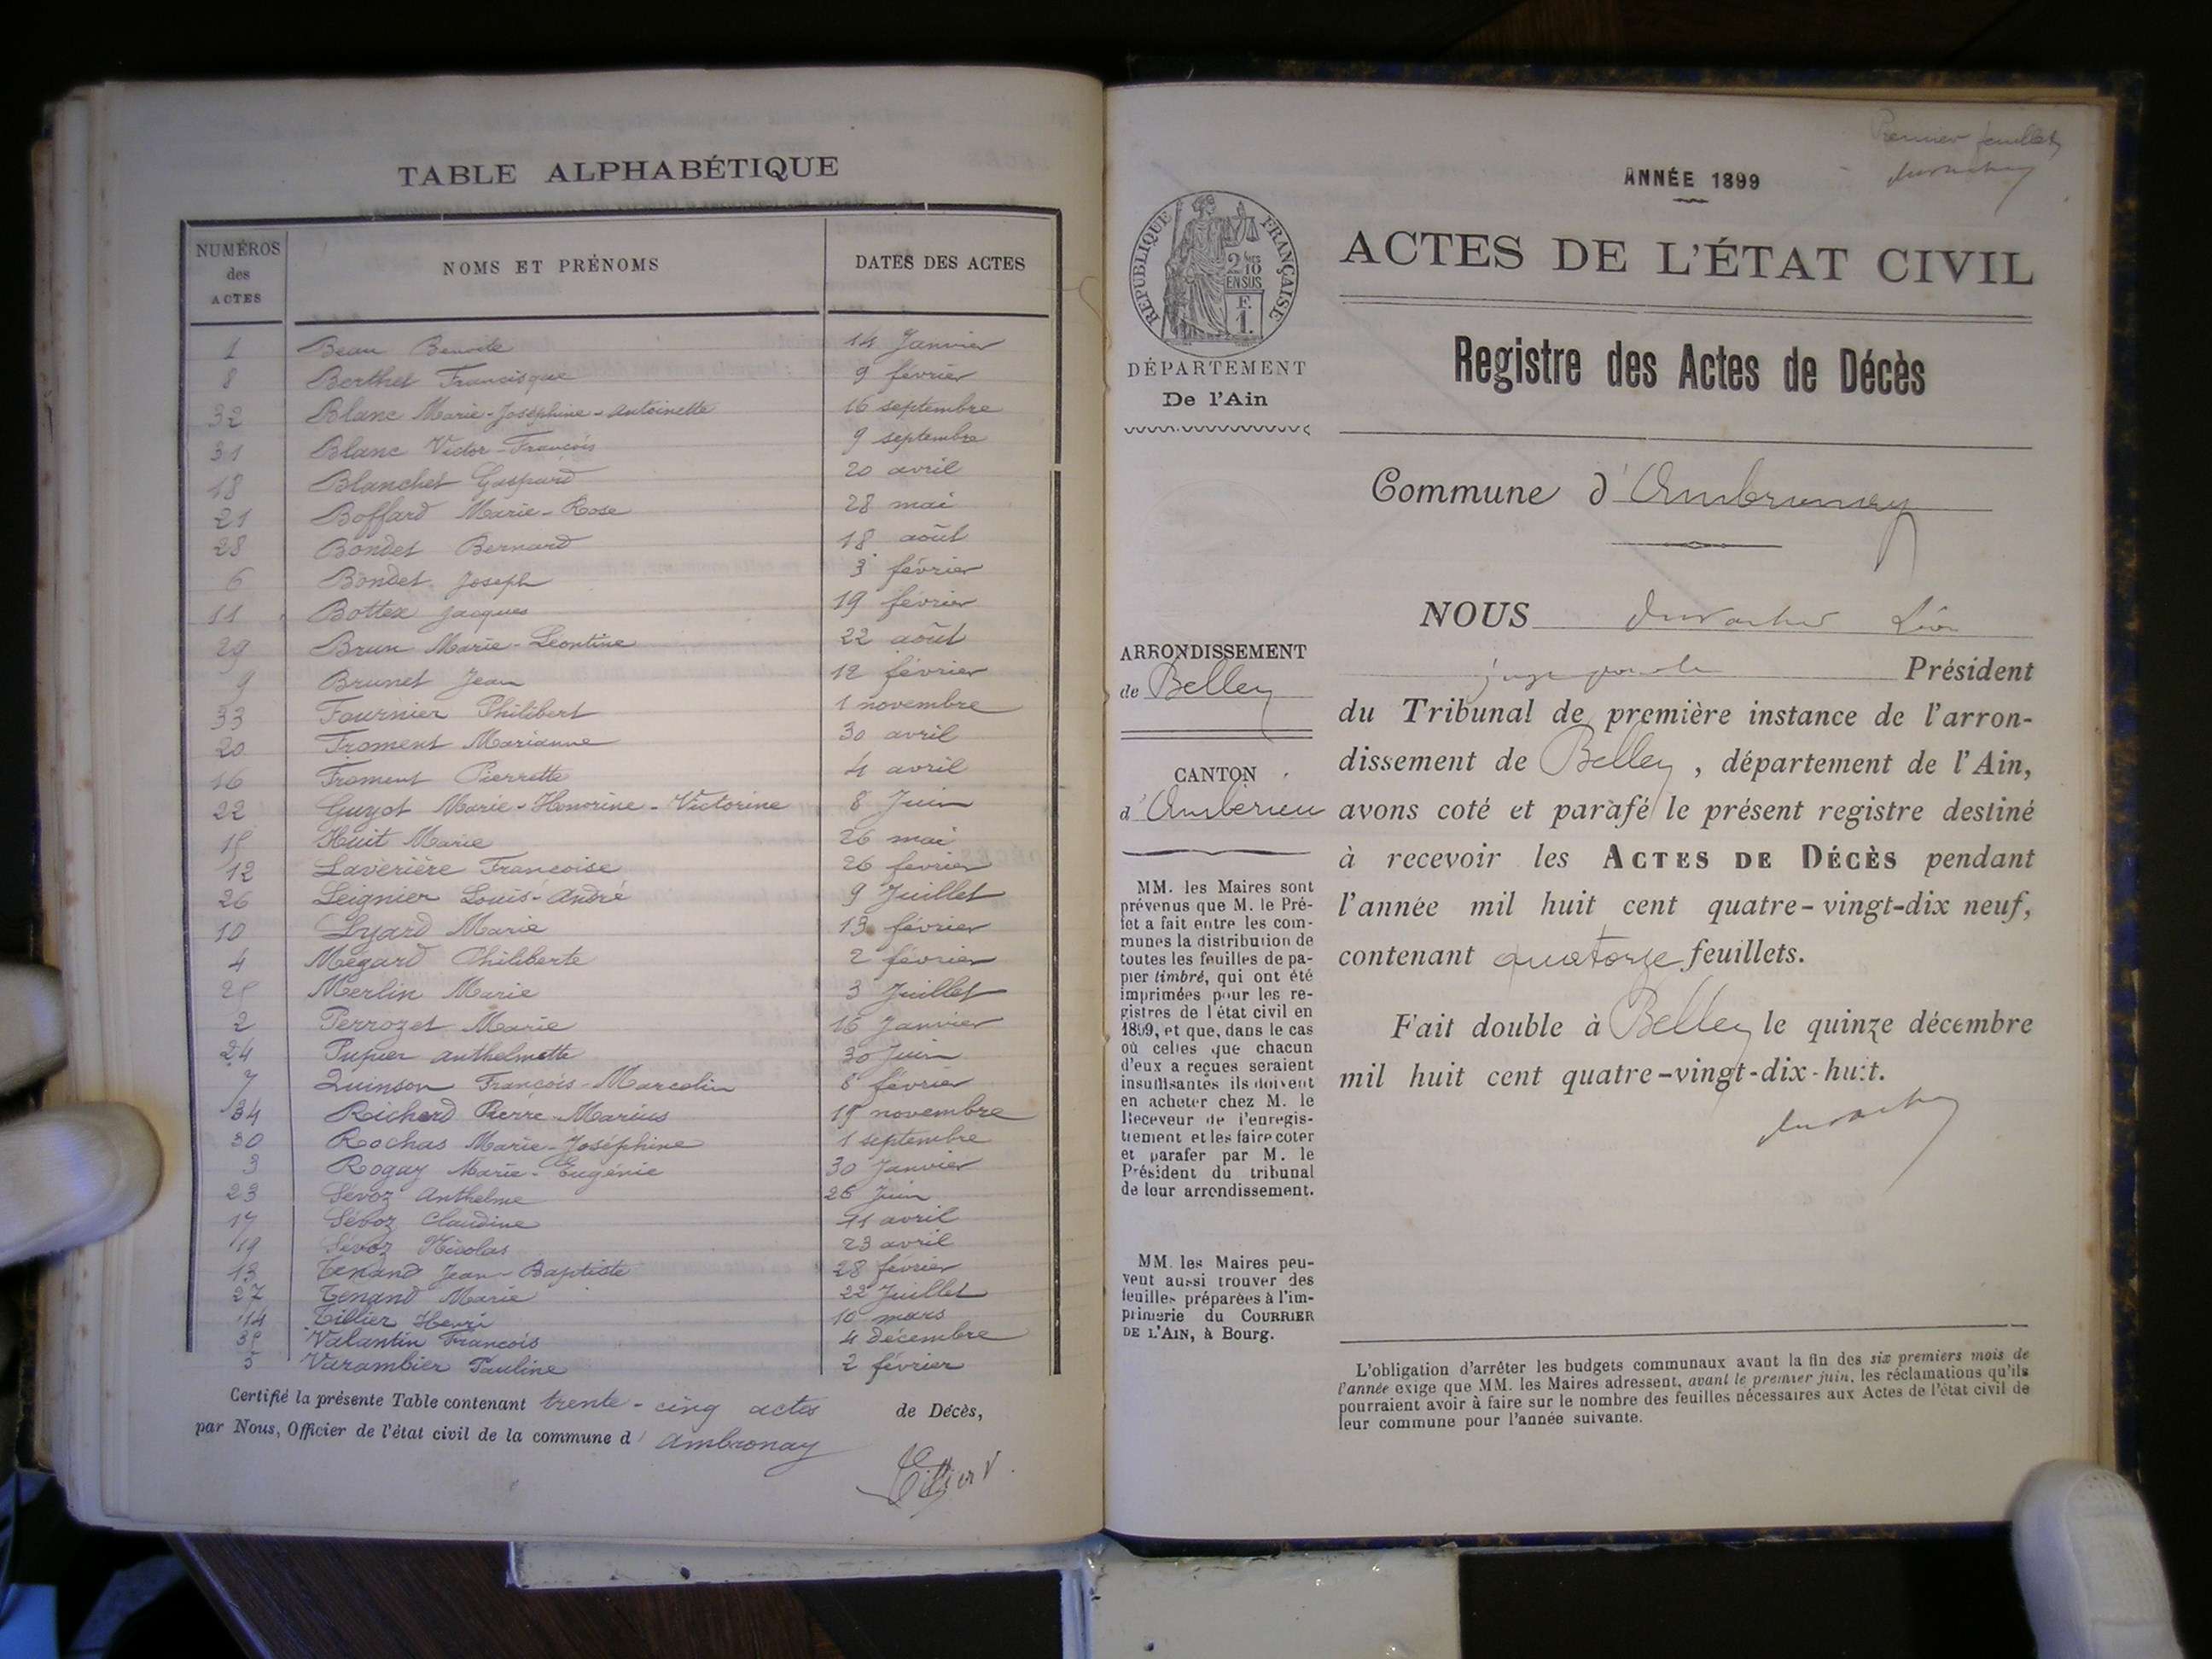 TABLE ALPHABÉTIQUE
NUMÉROS des ACTES NOMS ET PRÉNOMS DATES DES ACTES
1 Beau Benoite 14 Janvier
8 Berthet Francisque 9 février
32 Blanc Marie-Joséphine-Antoinette 16 septembre
31 Blanc Victor-François 9 septembre
18 Blanchet Gaspard 20 avril
21 Boffard Marie-Rose 28 mai
28 Bondet Bernard 18 août
6 Bondet Joseph 3 février
11 Bottex Jacques 19 février
29 Brun Marie-Leontine 22 août
9 Brunet Jean 12 février
33 Fournier Philibert 1 novembre
20 Froment Marianne 30 avril
16 Froment Pierrette 4 avril
22 Guyot Marie-Honorine-Victorine 8 Juin
15 Huit Marie 26 mai
12 Laverière Francoise 26 février
26 Leignier Louis-André 9 Juillet
10 Lyard Marie 13 février
4 Mégard Philiberte 2 février
25 Merlin Marie 3 Juillet
2 Perrozet Marie 16 Janvier
24 Pupier anthelmette 30 Juin
7 Quinson François-Marcelin 8 février
34 Richerd Pierre-Marius 15 novembre
30 Rochas Marie-Joséphine 1 septembre
3 Rogay Marie-Eugénie 30 Janvier
23 Sévoz Anthelme 26 Juin
17 Sévoz Claudine 11 avril
19 Sévoz Nicolas 23 avril
13 Tenand Jean-Baptiste 28 février
27 Tenand Marie 22 Juillet
14 Tillier Henri 10 mars
35 Valantin François 4 décembre
5 Varambier Pauline 2 février
Certifié la présente Table contenant trente-cinq actes de Décès,
par Nous, Officier de l'état civil de la commune d'Ambronay
Tillier
Premier feuillet
ANNÉE 1899
RÉPUBLIQUE FRANÇAISE
2/10 EN SUS
F. 1.
ACTES DE L'ÉTAT CIVIL
DÉPARTEMENT
De l'Ain
Registre des Actes de Décès
Commune d'Ambronay
ARRONDISSEMENT
de Belley
CANTON
d'Ambérieu
MM. les Maires sont
prévenus que M. le Pré-
fet a fait entre les com-
munes la distribution de
toutes les feuilles de pa-
pier timbré, qui ont été
imprimées pour les re-
gistres de l'état civil en
1899, et que, dans le cas
où celles que chacun
d'eux a reçues seraient
insuffisantes ils doivent
en acheter chez M. le
Receveur de l'enregis-
trement et les faire coter
et parafer par M. le
Président du tribunal
de leur arrondissement.
MM. les Maires peu-
vent aussi trouver des
feuilles préparées à l'im-
primerie du COURRIER
DE L'AIN, à Bourg.
NOUS Léon
Président
du Tribunal de première instance de l'arron-
dissement de Belley, département de l'Ain,
avons coté et parafé le présent registre destiné
à recevoir les ACTES DE DÉCÈS pendant
l'année mil huit cent quatre-vingt-dix neuf,
contenant quatorze feuillets.
Fait double à Belley le quinze décembre
mil huit cent quatre-vingt-dix-huit.
L'obligation d'arrêter les budgets communaux avant la fin des six premiers mois de
l'année exige que MM. les Maires adressent, avant le premier juin, les réclamations qu'ils
pourraient avoir à faire sur le nombre des feuilles nécessaires aux Actes de l'état civil de
leur commune pour l'année suivante.